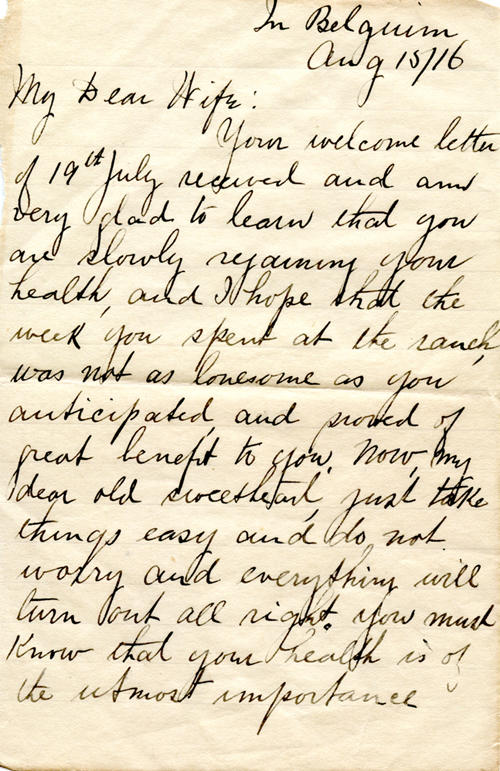 In Belguim
Aug 15/16
My Dear Wife:
Your welcome letter
of 19th July received and am
very glad to learn that you
are slowly regaining your
health, and I hope that the
week you spent at the ranch,
was not as lonesome as you
anticipated, and proved of
great benefit to you. Now, my
dear old sweetheart, just take
things easy and do not
worry and everything will
turn out all right. You must
Know that your health is of
the utmost importance